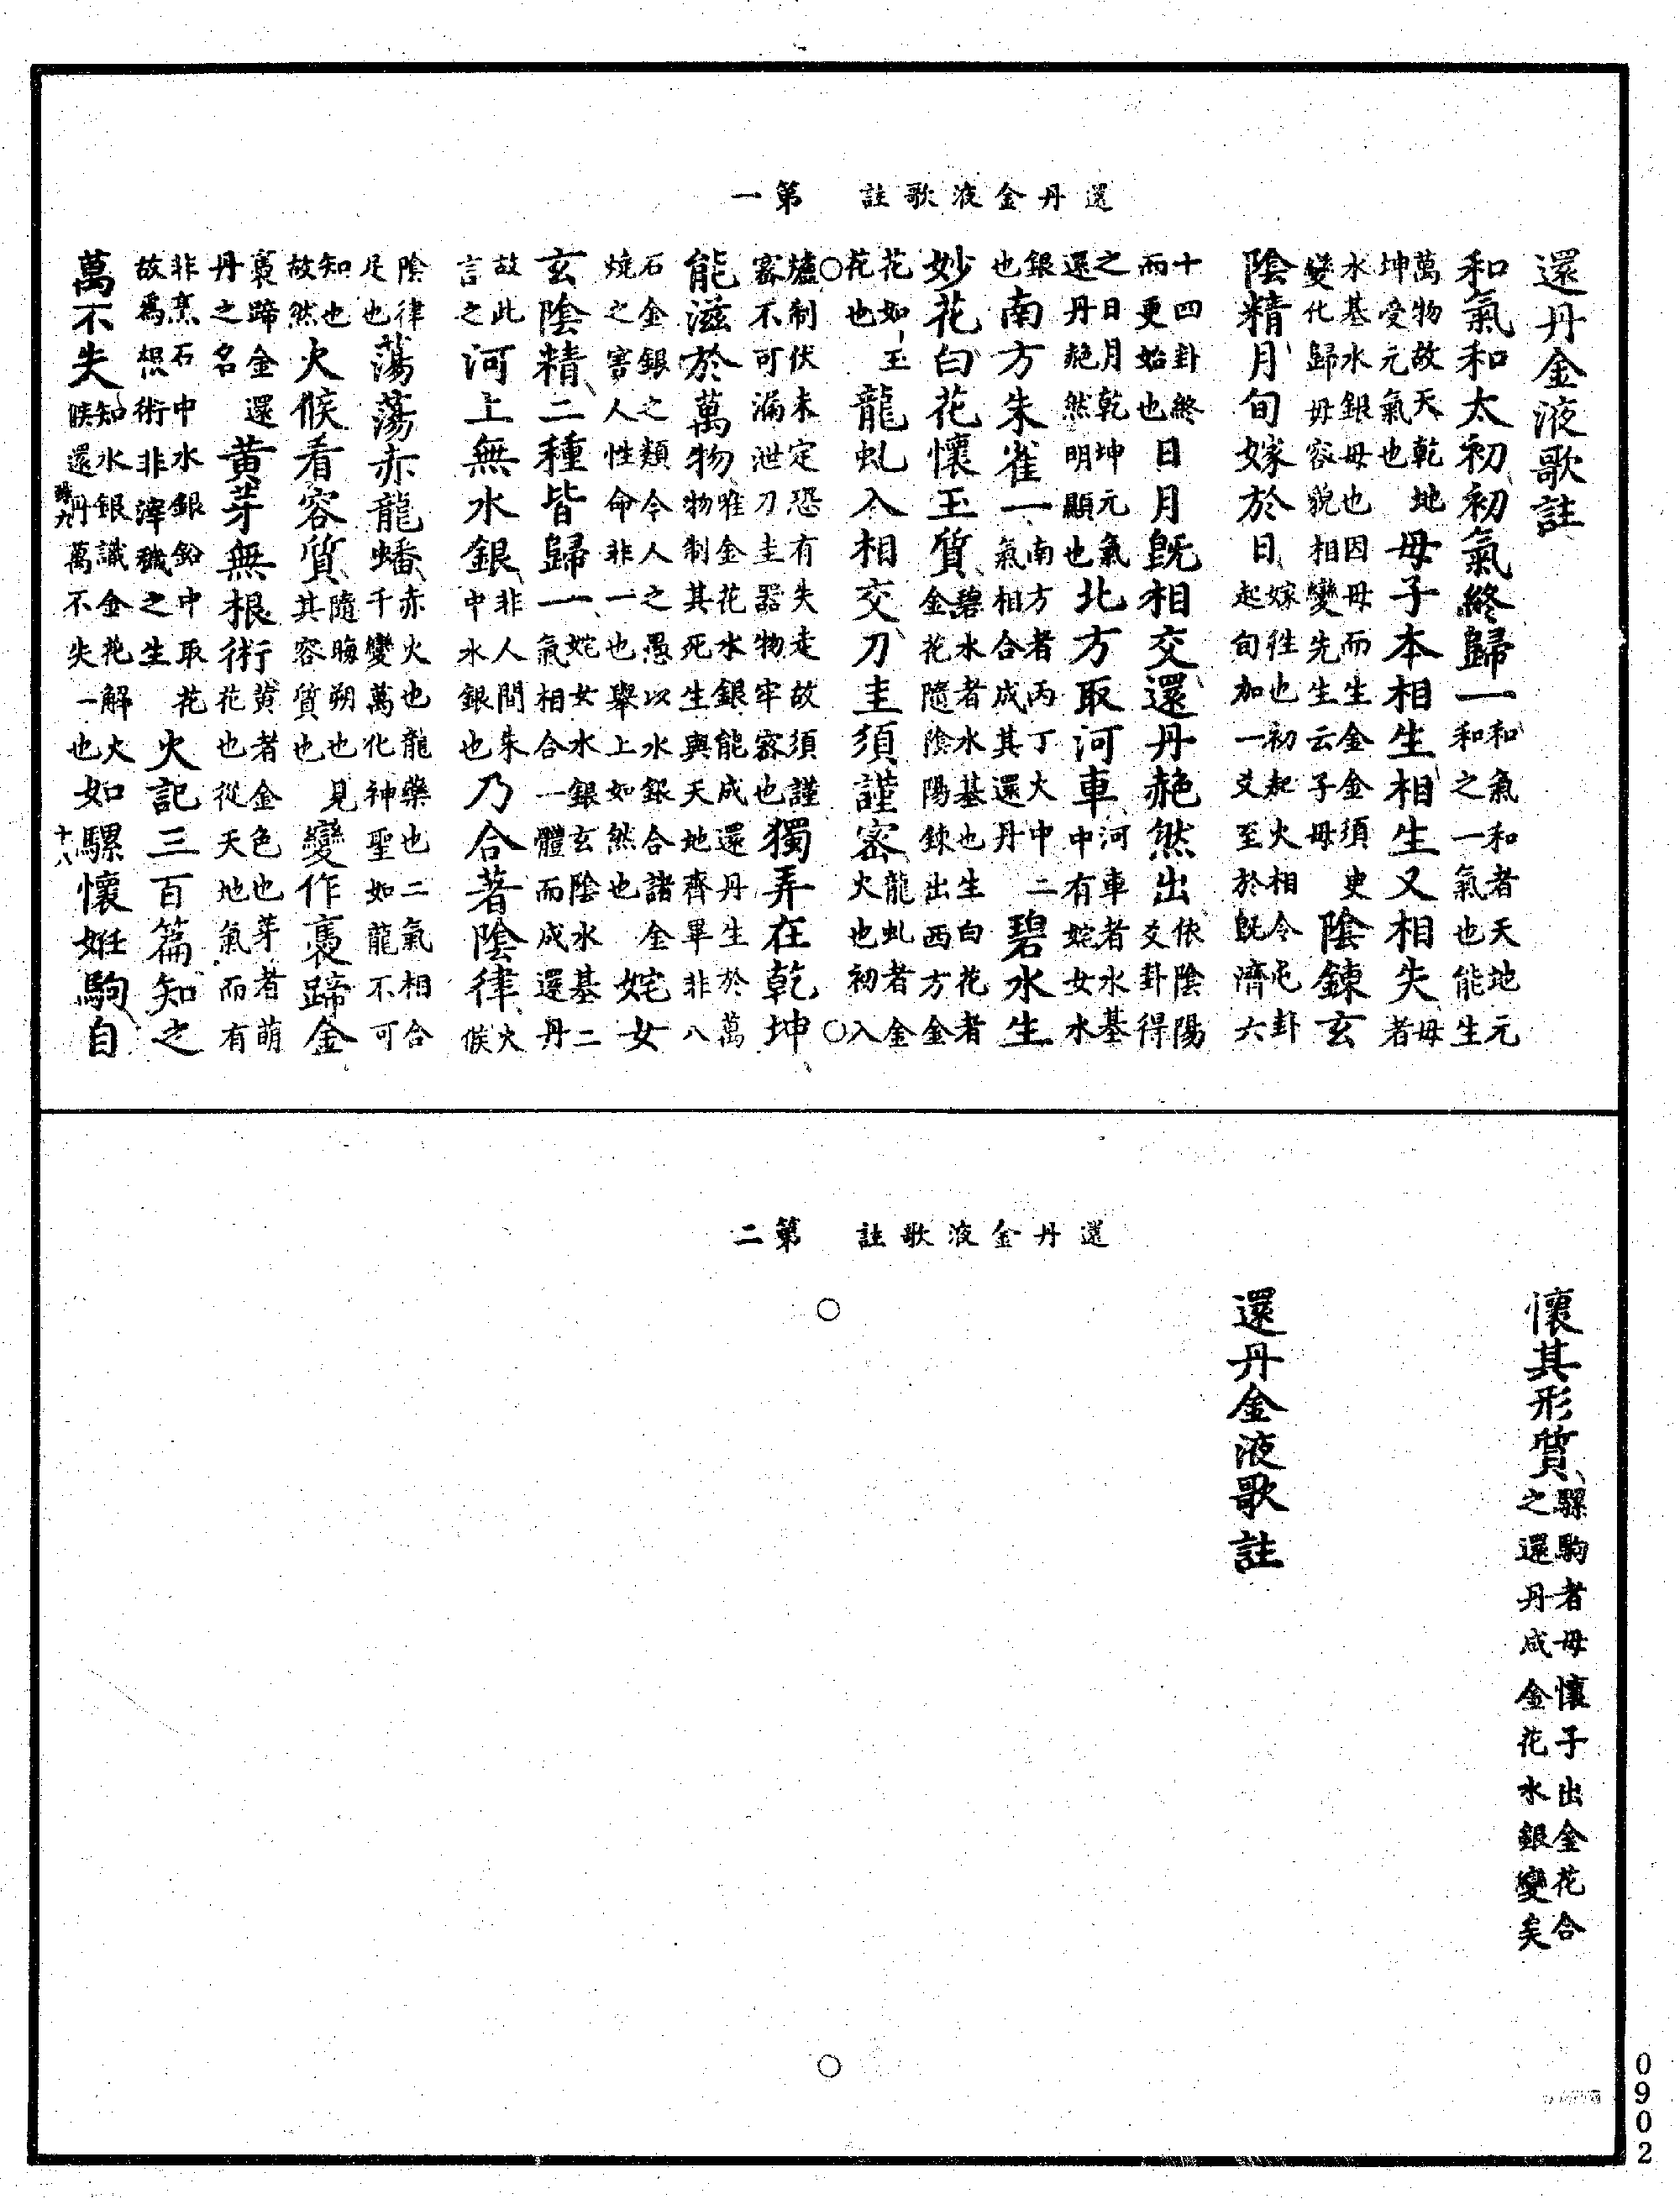 還丹金液歌註　第一
還丹金液歌註
和氣和太初初氣終歸一和氣和者天地元和之一氣也能生
萬物故天乾地坤受元氣也母子本相生相生又相失母者
水基水銀母也因母而生金金須吏變化歸母容貌相變先生云子母陰鍊玄
陰精月旬嫁於日嫁往也初起火相令屯卦起旬加一爻至於旣濟六
十四卦終而更始也日月旣相交還丹赩然出依陰陽爻卦得
之日月乾坤元氣還丹赩然明顯也北方取河車河車者水基中有姹女水
銀也南方朱雀一南方者丙丁火中二氣相合成其還丹碧水生
妙花白花懷玉質碧水者水基也生白花者金花隨陰陽鍊出西方金
花如玉花也龍虬入相交刀圭須謹密龍虬者金火也初入
爐制伏未定恐有失走故須謹密不可漏泄刀圭器物牢密也獨弄在乾坤
能滋於萬物唯金花水銀能成還丹生於萬物制其死生與天地齊畢非八
石金銀之類今人之愚以水銀合諸金燒之害人性命非一也舉上如然也姹女
玄陰精二種皆歸一姹女水銀玄陰水基二氣相合一體而成還丹
故此言之河上無水銀非人間朱中水銀也乃合著陰律火候
陰律是也蕩蕩赤龍蟠赤火也龍藥也二氣相合千變萬化神聖如龍不可
知也故然火候看容質隨晦朔也其容質也見變作褭蹄金
褭蹄金還丹之名黃芽無根術黃者金色也芽者萌花也從天地氣而有
非烹石中水銀鉛中取花故爲想術非滓穢之生火記三百篇知之
萬不失知水銀識金花解火候還丹萬不失一也如騾懷姙駒自
十八
還丹金液歌註　第二
懷其形質騾駒者母懷子出金花合之還丹成金花水銀變矣
還丹金液歌註
0902